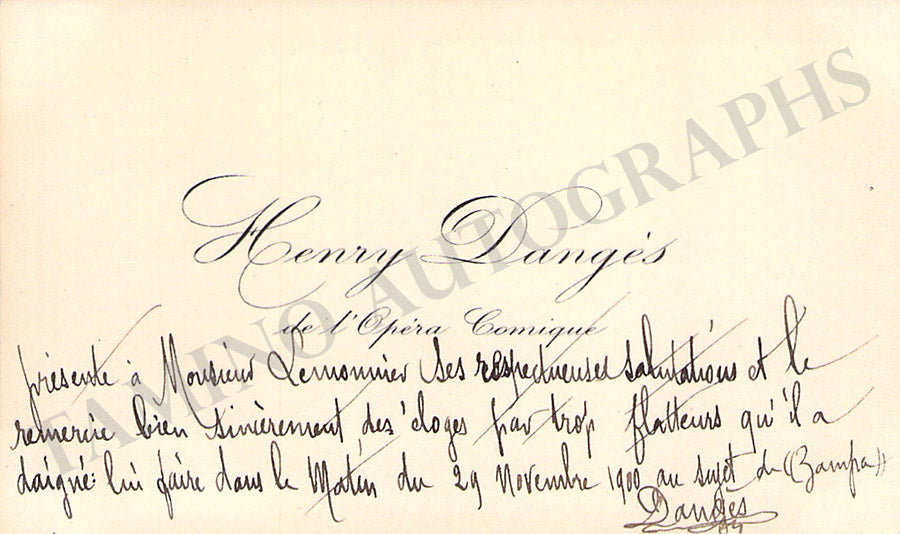 Henry Dangès
de l'Opéra Comique
présente à Monsieur Lemonnier ses respectueuses salutations et le
remercie bien sincèrement des éloges par trop flatteurs qu'il a
daigné lui faire dans le Matin du 29 Novembre 1900 au sujet de (Zampa)
Dangès
TAMINO AUTOGRAPHS